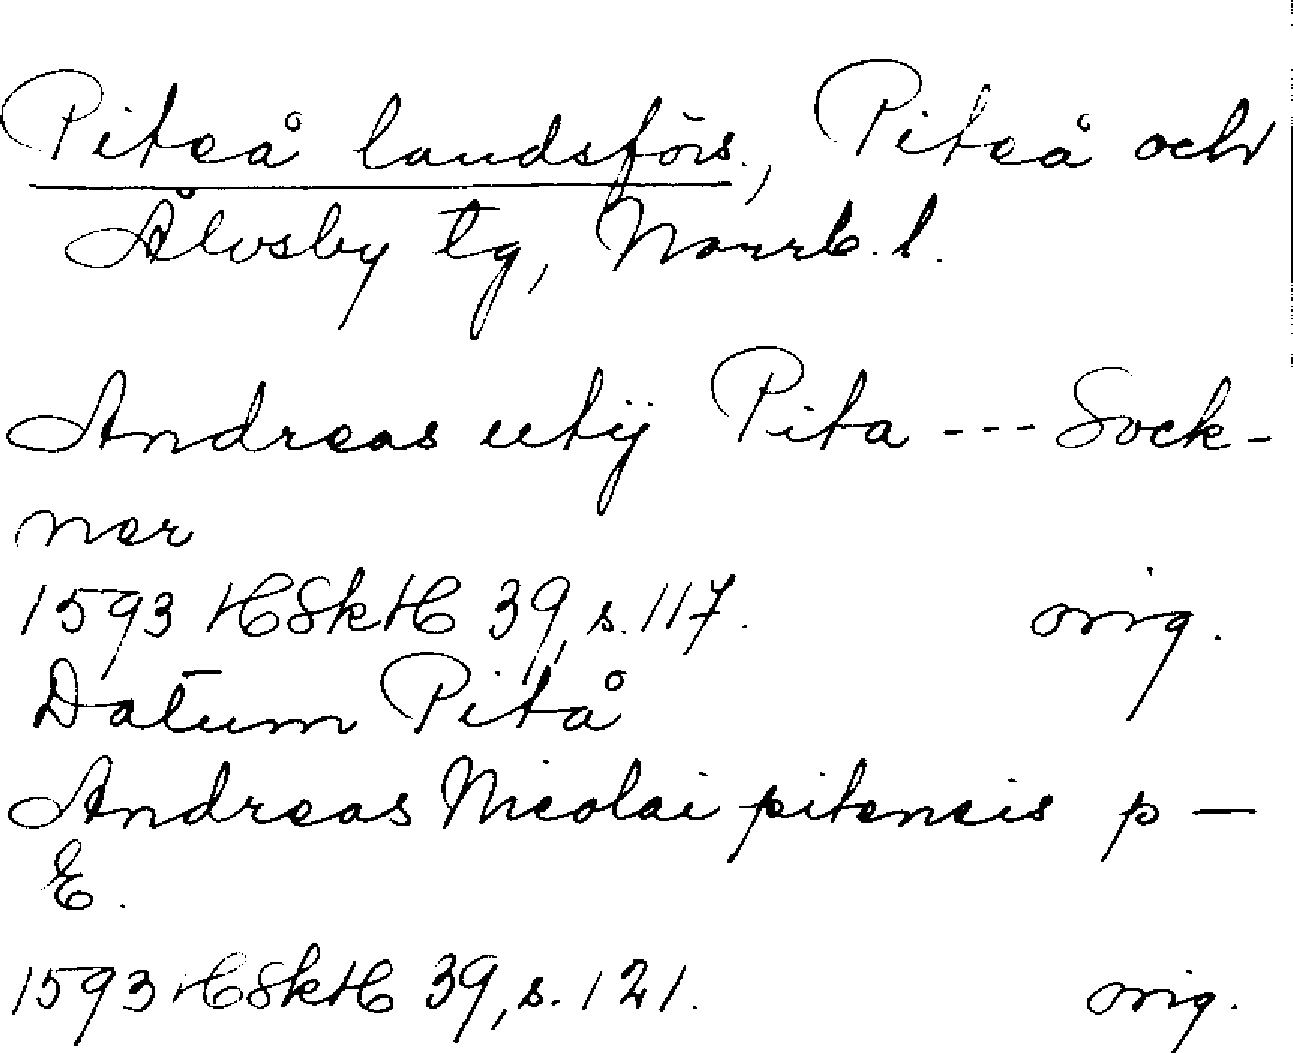 Piteå landsförs., Piteå och
Älvsby tg, Norrb. l.
Andreas utij Pita --- Sock-
ner
1593 HSkH 39, s. 117. orig.
Datum Pitå
Andreas Nicolai pitensis p –
E.
1593 HSkH 39, s. 121. orig.